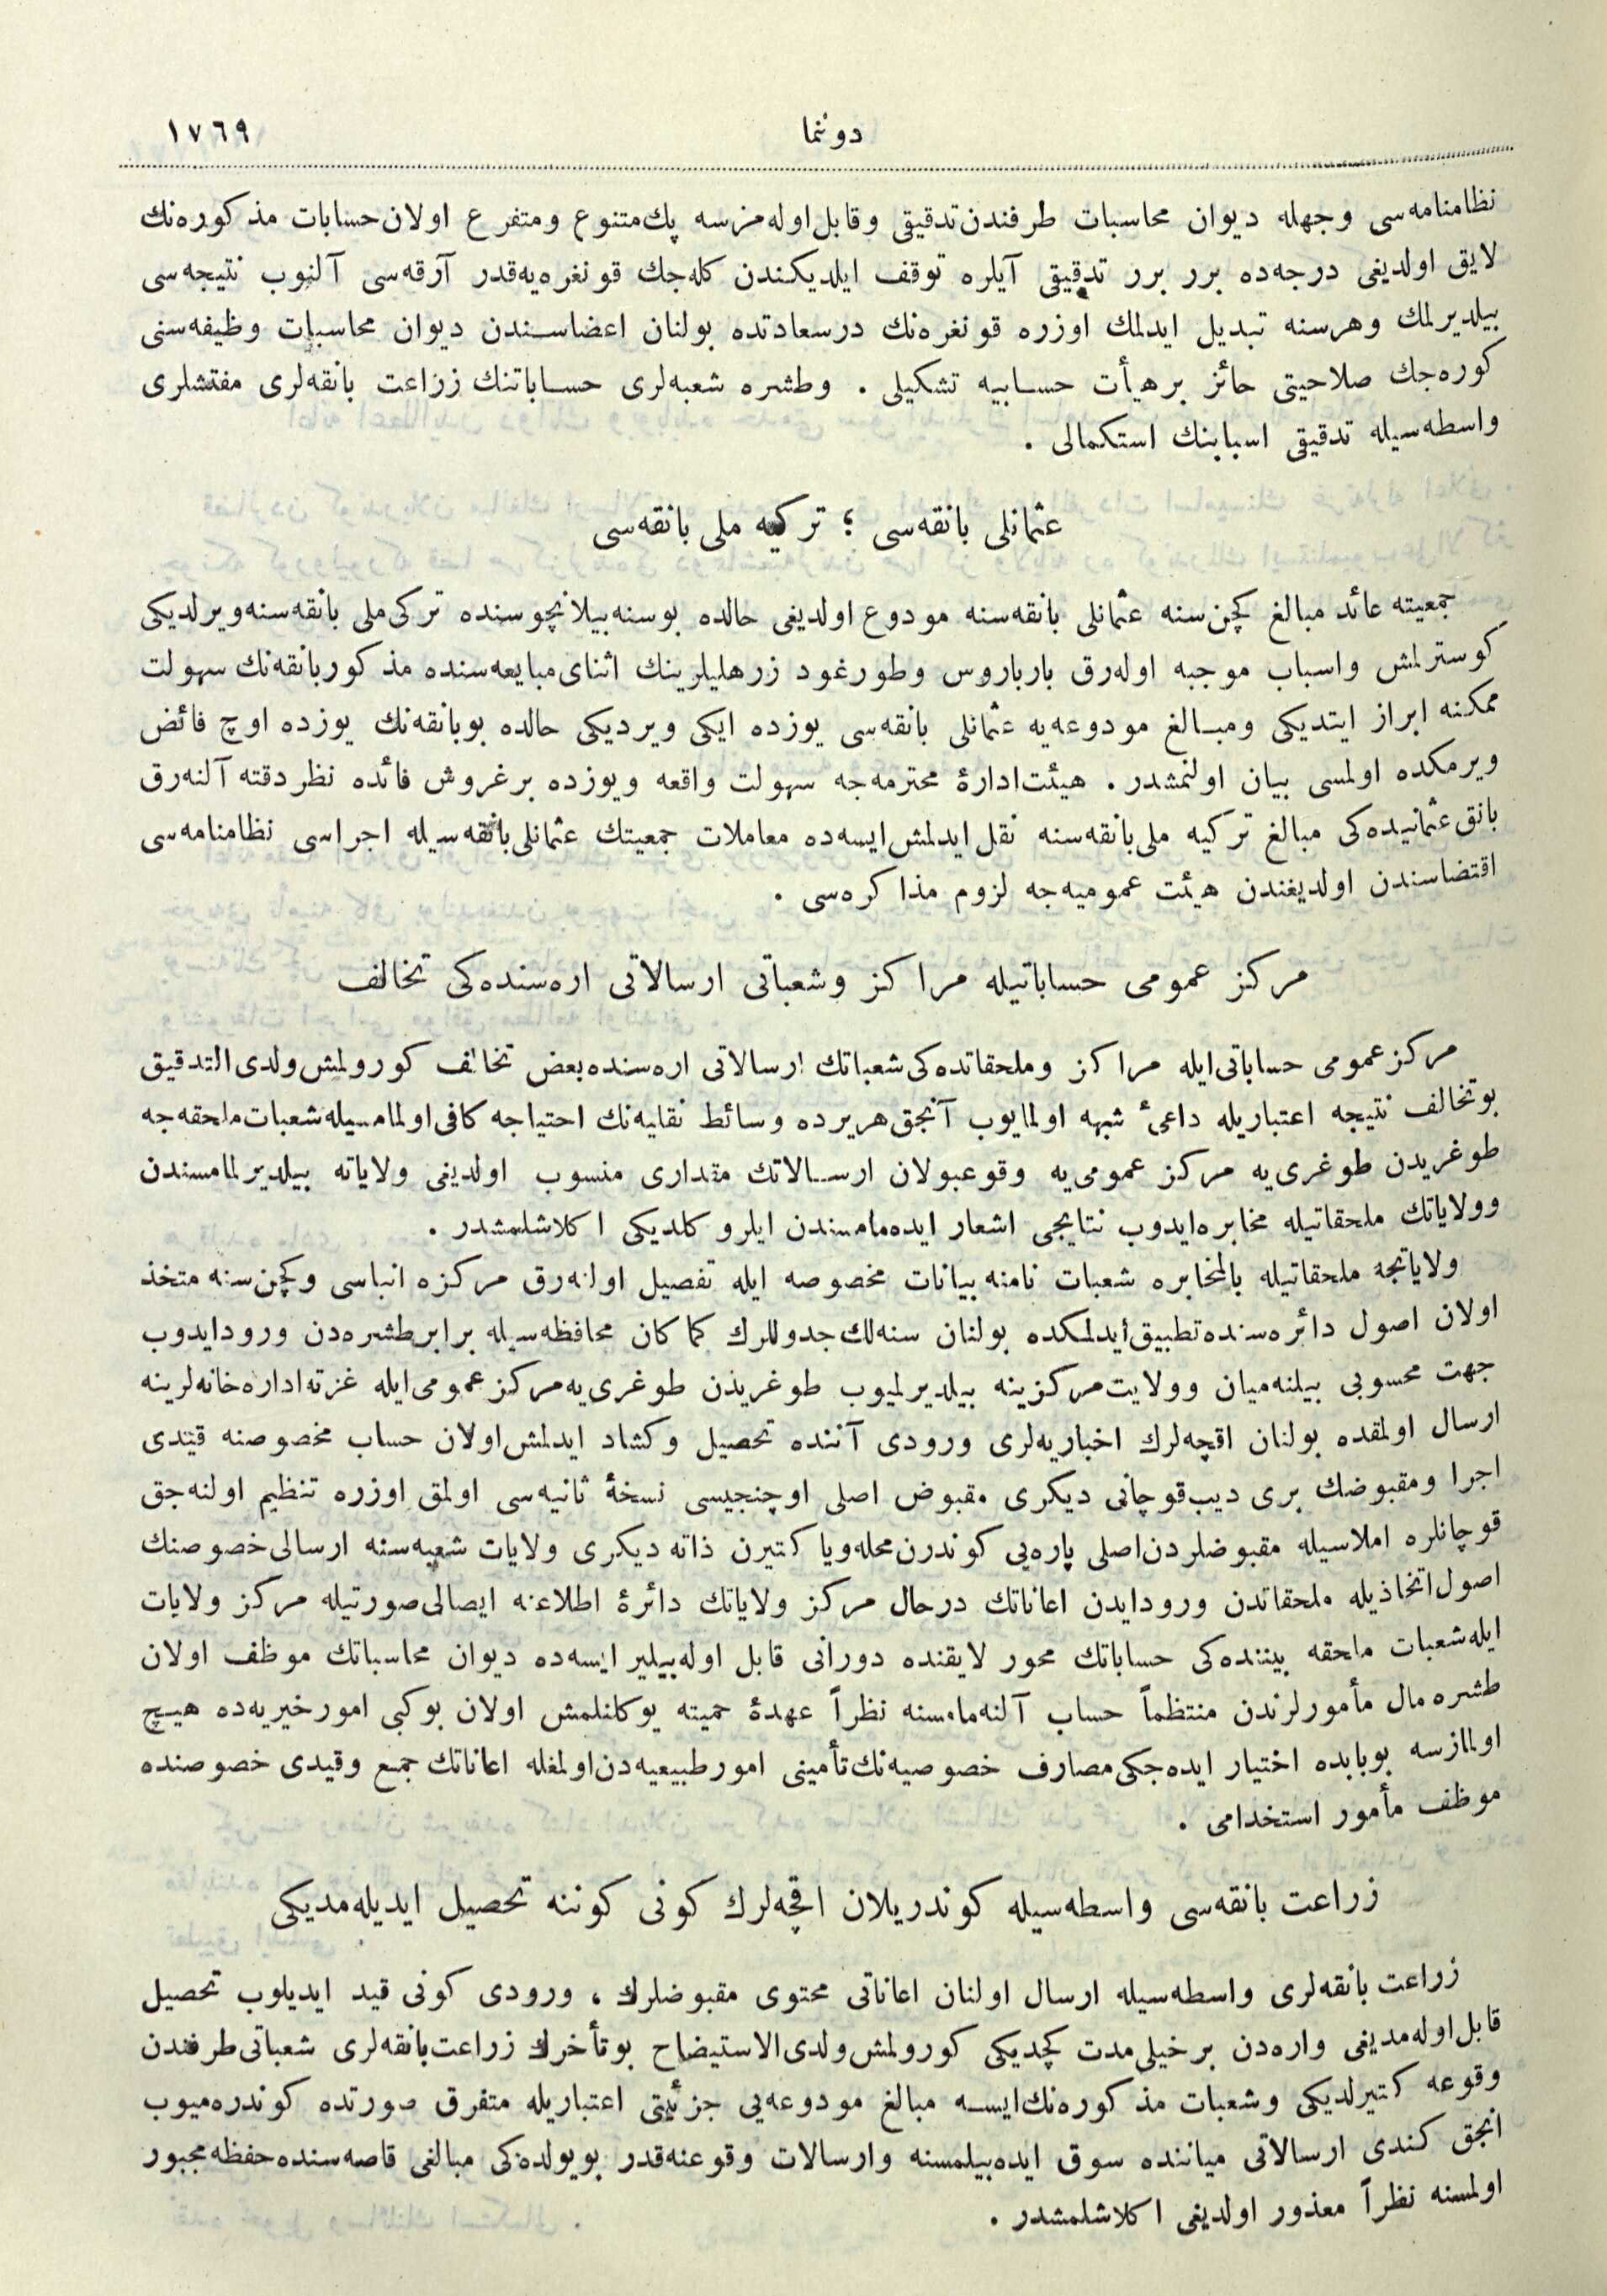 دونما
١٧٦٩
نظامنامه‌سی وجهله دیوان محاسبات طرفندن تدقیقی وقابل اوله‌مزسه پك متنوع ومتفرع اولان حسابات مذكوره‌نك
لایق اولدیغی درجه‌ده برر برر تدقیقی آیلره توقف ایلدیكندن كله‌جك قونغره‌یه‌قدر آرقه‌سی آلنوب نتیجه‌سی
بیلدیرلمك وهرسنه تبدیل ایدلمك اوزره قونغره‌نك درسعادتده بولنان اعضاسندن دیوان محاسبات وظیفه‌سنی
كوره‌جك صلاحیتی حائز برهیأت حسابیه تشكیلی . وطشره شعبه‌لری حساباتنك ززاعت بانقه‌لری مفتشلری
واسطه‌سیله تدقیقی اسبابنك استكمالی .
عثمانلی بانقه‌سی ؛ تركیه ملی بانقه‌سی
جمعیته عائد مبالغ كچن سنه عثمانلی بانقه‌سنه مودوع اولدیغی حالده بوسنه بیلانچوسنده تركی ملی بانقه‌سنه ویرلدیكی
كوسترلمش واسباب موجبه اوله‌رق بارباروس وطورغود زرهلیلرینك اثنای مبایعه‌سنده مذكور بانقه‌نك سهولت
ممكنه ابراز ایتدیكی ومبالغ مودوعه‌یه عثمانلی بانقه‌سی یوزده ایكی ویردیكی حالده بوبانقه‌نك یوزده اوچ فائض
ویرمكده اولمسی بیان اولنمشدر . هیئت ادارۀ محترمه‌جه سهولت واقعه ویوزده برغروش فائده نظر دقته آلنه‌رق
بانق عثمانیده‌كی مبالغ تركیه ملی بانقه‌سنه نقل ایدلمش ایسه‌ده معاملات جمعیتك عثمانلی بانقه‌سیله اجراسی نظامنامه‌سی
اقتضاسندن اولدیغندن هیئت عمومیه‌جه لزوم مذاكره‌سی .
مركز عمومی حساباتیله مراكز وشعباتی ارسالاتی اره‌سنده‌كی تخالف
مركز عمومی حساباتی ایله مراكز وملحقاتده‌كی شعباتك ارسالاتی اره‌سنده بعض تخالف كورولمش ولدی التدقیق
بوتخالف نتیجه اعتباریله داعیٔ شبهه اولمایوب آنجق هریرده وسائط نقلیه‌نك احتیاجه كافی اولمامسیله شعبات ملحقه‌جه
طوغریدن طوغری‌یه مركز عمومی‌یه وقوعبولان ارسالاتك مقداری منسوب اولدیغی ولایاته بیلدیرلمامسندن
وولایاتك ملحقاتیله مخابره ایدوب نتایجی اشعار ایده‌مامسندن ایلرو كلدیكی اكلاشلمشدر .
ولایاتجه ملحقاتیله بالمخابره شعبات نامنه بیانات مخصوصه ایله تفصیل اولنه‌رق مركزه انباسی وكچن سنه متخذ
اولان اصول دائره‌سنده تطبیق ایدلمكده بولنان سنه‌لك جدوللرك كماكان محافظه‌سیله برابر طشره‌دن ورودایدوب
جهت محسوبی بیلنه‌میان وولایت مركزینه بیلدیرلمیوب طوغریدن طوغری‌یه مركز عمومی ایله غزته اداره‌خانه‌لرینه
ارسال اولمقده بولنان اقچه‌لرك اخباریه‌لری ورودی آننده تحصیل وكشاد ایدلمش اولان حساب مخصوصنه قیدی
اجرا ومقبوضك بری دیب قوچانی دیكری مقبوض اصلی اوچنجیسی نسخۀ ثانیه‌سی اولمق اوزره تنظیم اولنه‌جق
قوچانلره املاسیله مقبوضلردن اصلی پاره‌یی كوندرن محله ویا كتیرن ذاته دیكری ولایات شعبه‌سنه ارسالی خصوصنك
اصول اتخاذیله ملحقاتدن ورودایدن اعاناتك درحال مركز ولایاتك دائرۀ اطلاعنه ایصالی صورتیله مركز ولایات
ایله شعبات ملحقه بیننده‌كی حساباتك محور لایقنده دورانی قابل اوله‌بیلیر ایسه‌ده دیوان محاسباتك موظف اولان
طشره مال مأمورلرندن منتظماً حساب آلنه‌مامسنه نظراً عهدۀ حمیته یوكلنلمش اولان بوكبی امور خیریه‌ده هیچ
اولمازسه بوبابده اختیار ایده‌جكی مصارف خصوصیه‌نك تأمینی امور طبیعیه‌دن اولمغله اعاناتك جمع وقیدی خصوصنده
موظف مأمور استخدامی .
زراعت بانقه‌سی واسطه‌سیله كوندریلان اقچه‌لرك كونی كوننه تحصیل ایدیله‌مدیكی
زراعت بانقه‌لری واسطه‌سیله ارسال اولنان اعاناتی محتوی مقبوضلرك ، ورودی كونی قید ایدیلوب تحصیل
قابل اوله‌مدیغی واره‌دن برخیلی مدت كچدیكی كورولمش ولدی الاستیضاح بوتأخرك زراعت بانقه‌لری شعباتی طرفندن
وقوعه كتیرلدیكی وشعبات مذكوره‌نك ایسه مبالغ مودوعه‌یی جزئیتی اعتباریله متفرق صورتده كوندره‌میوب
انجق كندی ارسالاتی میاننده سوق ایده‌بیلمسنه وارسالات وقوعنه‌قدر بویولده‌كی مبالغی قاصه‌سنده حفظه مجبور
اولمسنه نظراً معذور اولدیغی اكلاشلمشدر .